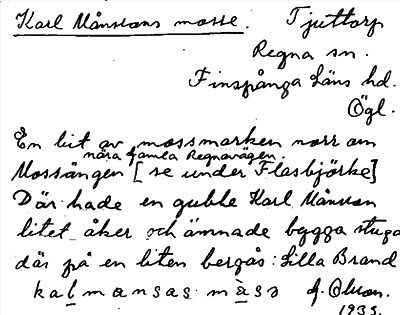 Karl Månssons mosse. Tjuttorp
Regna sn.
Finspånga läns hd.
Ögl.
En bit av mossmarken norr om
nära gamla Regnavägen
Mossängen [se under Flesbjörke]
Där hade en gubbe Karl Månsson
litet åker och ämnade bygga stuga
där på en liten bergås: Lilla Brand
kalmansas màsə A. Olsson.
1933.